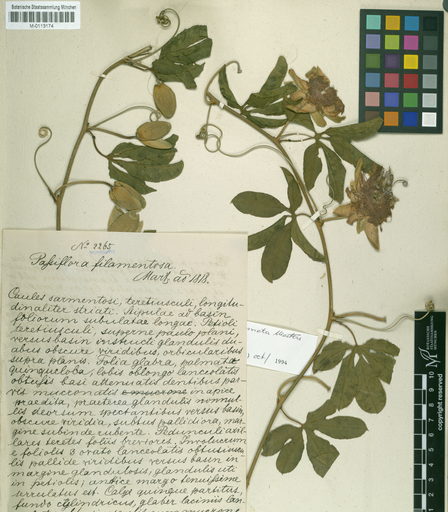 Botanische Staatssammlung München
M-0113174
No. 2265
Passiflora filamentosa
Mart. ad 1818.
Caules sarmentosi, teretiusculi, longitu-
dinaliter striati. Stipulae ad basin
foliorum subulatae longae. Petioli
teretiusculi, superne paulo plani,
versus basin instructi glandulis du-
abus obscure viridibus, orbicularibus
supra planis. Folia glabra, palmato
quinqueloba; lobis oblongo lanceolatis
obtusis basi attenuatis dentibus par-
vis mucronatis in apice
praedita, praeterea glandulis nonnul-
lis deorsum spectantibus versus basin,
obscure viridia, subtus pallidiora, mar-
gine subinde rubente. Pedunculi axil-
lares teretes fotus breviores. Involucrum
e foliolis 3 ovato lanceolatis obtusiuscu-
lis pallide viridibus versus basin in
margine glandulosis, glandulis uti
in petiolis, antice margo tenuissime
serrulatus est. Calyx quinque partitus,
fundo cylindricus, glaber laciniis lan-
1994